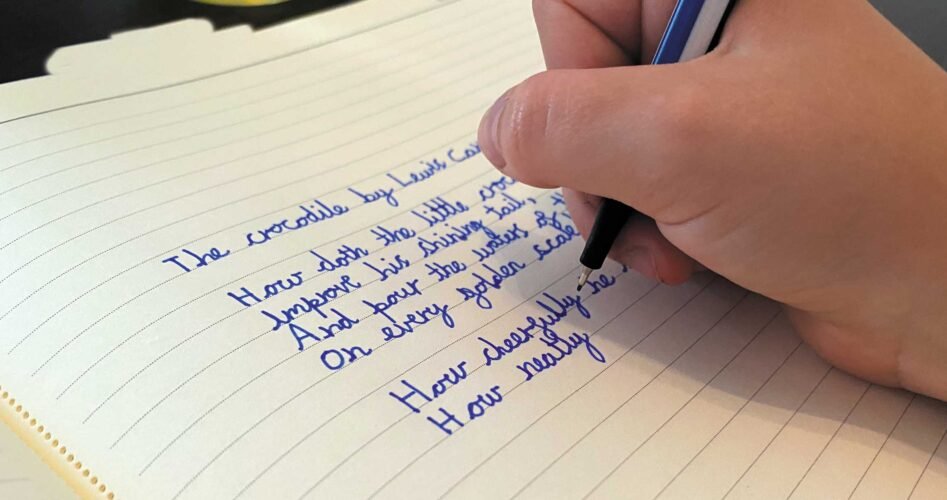 The crocodile by Lewis Ca
How doth the little croc
improve his shining tail,
And pour the waters of th
On every golden scale
How cheerfully he
How neatly